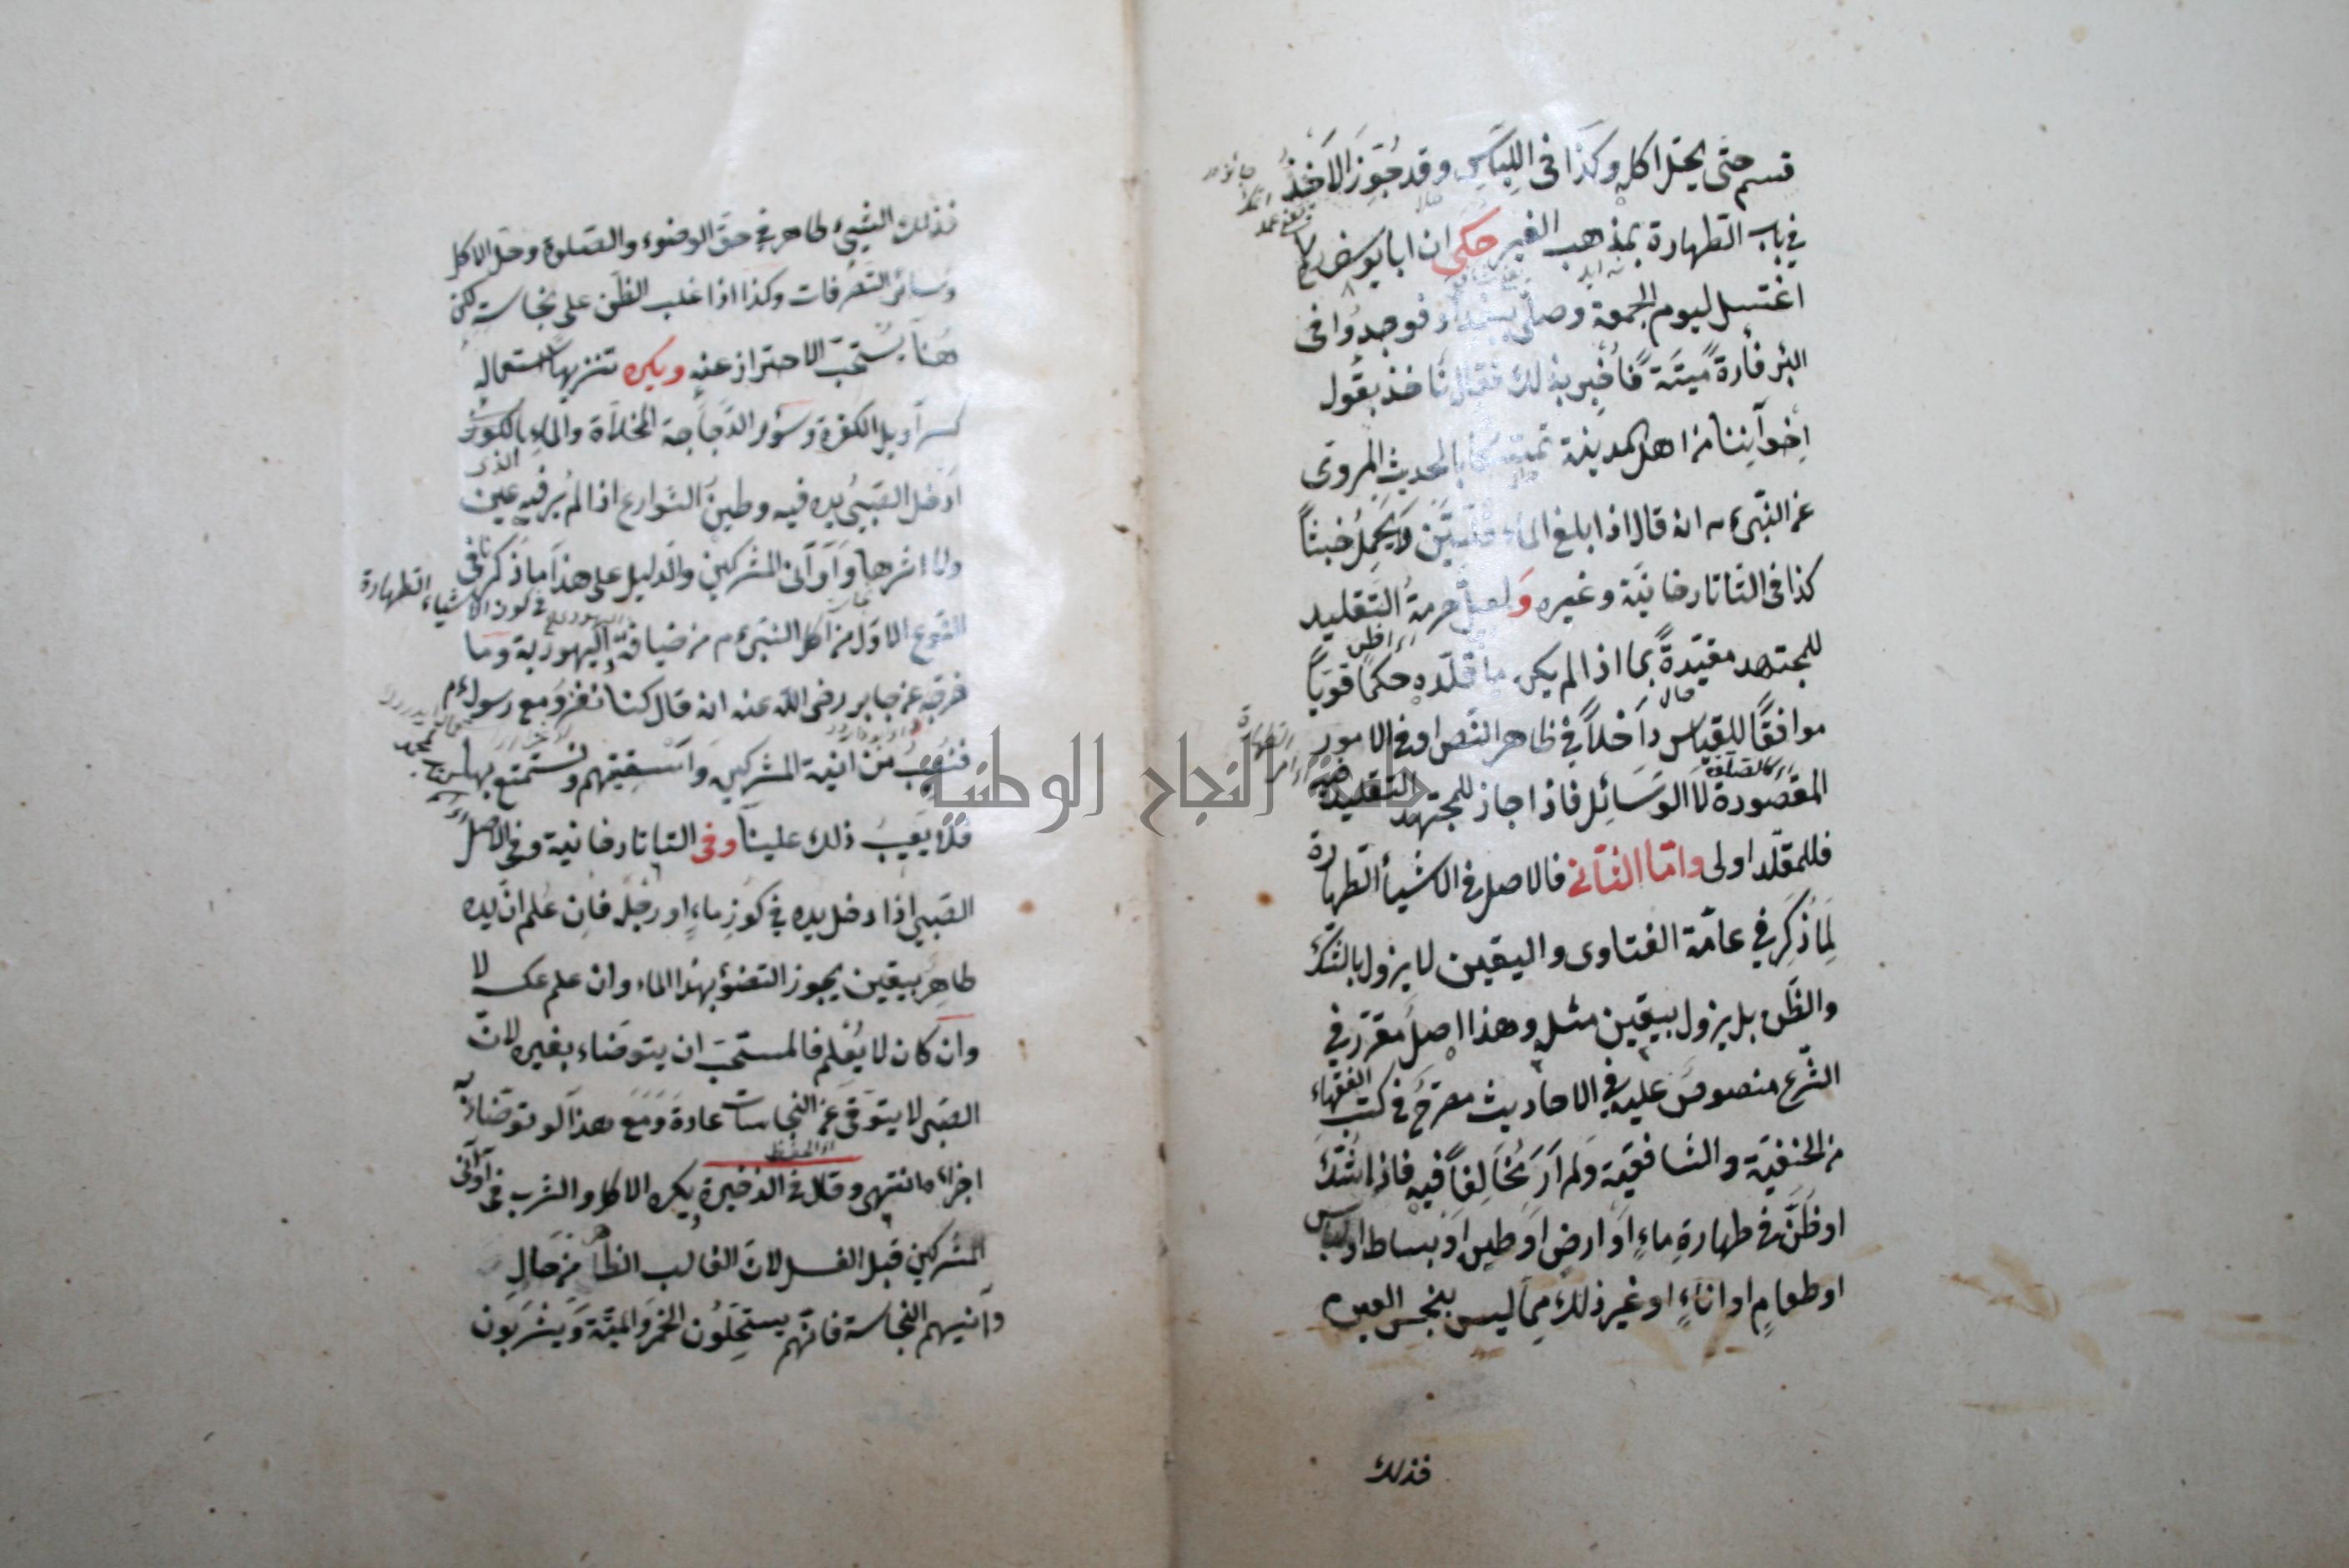 قسم حتى يحلّ اكله وكذا فى اللباس وقد جُوّز الاخذ
فى باب الطهارة بمذهب الغير حكى ان ابا يوسف رح
اغتسل ليوم الجمعة وصلّى ببغداد فوجدوا فى
البئر فأرة ميتة فأخبر بذلك فقال نأخذ بقول
اخواننا من اهل المدينة تمسّكا بالحديث المروى
عن النبى انه قال اذا بلغ الماء قلتين لا يحمل خبثاً
كذا فى التاتارخانية وغيره ولعل حرمة التقليد
للمجتهد مقيّدة بما اذا لم يكن ما قلّده حكما قويّاً
موافقًا للقياس داخلاً فى ظاهر النص او فى الامور
المقصودة لا الوسائل فاذا جاز للمجتهد التقليد
فللمقلّد اولى وامّا الثانى فالاصل فى الاشياء الطهارة
لما ذُكر فى عامّة الفتاوى واليقين لا يزول بالشك
والظن بل يزول بيقين مثله وهذا اصل مقرّر فى
الشرع منصوص عليه فى الاحاديث مصرّح فى كتب الفقهاء
من الحنفية والشافعية ولم ار مخالفاً فيه فاذا شك
او ظنّ فى طهارة ماءٍ او ارض او طين او بساط او لباس
او طعامٍ او اناءٍ او غير ذلك ممّا ليس بنجس العين
فذلك
فذلك الشيئ طاهر فى حق الوضوء والصلوة وحل الاكل
وسائر التصرفات وكذا اذا غلب الظن على نجاسته لكن
هنا يستحبّ الاحتراز عنه ويكره تنزيها استعماله
كسراويل الكفرة وسؤر الدجاجة المخلاة والماء بالكوز الذى
ادخل الصبى يده فيه وطين الشوارع اذا لم ير فيه عين
ولا اثرها واوانى المشركين والدليل على هذا ما ذكرنا فى
فى كون الاشياء الطهارة
النوع الاول من اكل النبى م من ضيافة اليهودية وما
خرجه عن جابر رضى الله عنه انه قال كنا نغزو مع رسول م
فنصيب من انية المشركين واسقيتهم ونستمتع بها
فلا يعيب ذلك علينا وفى التاتارخانية وفى الاصل
الصبى اذا ادخل يده فى كوز ماءٍ او رجله فان علم ان يده
طاهر بيقين يجوز التوضؤ بهذا الماء وان علم عكسه لا
وان كان لا يُعلم فالمستحب ان يتوضاء بغيره لانّ
الصبى لا يتوقى عن النجاسات عادة ومع هذا لو توضاء به
اجزاه انتهى وقال فى الذخيرة يكره الاكل والشرب فى اوانى
المشركين قبل الغسل لان الغالب الظاهر من حال
وانيهم النجاسة فانهم يستحلّون الخمر والميتة ويشربون
جامعة النجاح الوطنية